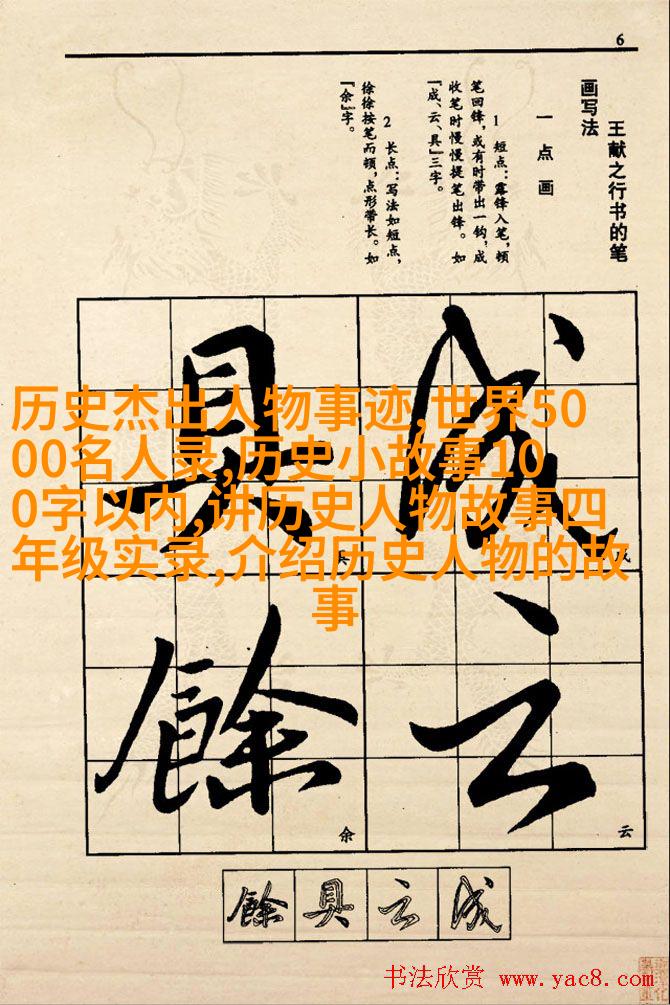 6
王献之行书的笔
画写法
一 点 画
1 短点：露锋入笔，顿
笔回锋，或有时带出一钩，成
收笔时慢慢提笔出锋。如
「成、云、具」三字。
2 长点：写法如短点，
徐徐按笔而顿，点形带长。如
「余」字。
历史杰出人物事迹,世界50
00名人录,历史小故事10
0字以内,讲历史人物故事四
年级实录,介绍历史人物的故
事
成
具
云
餘
成
具
云
余
餘 具 云 成
书法欣赏 www.yac8.com